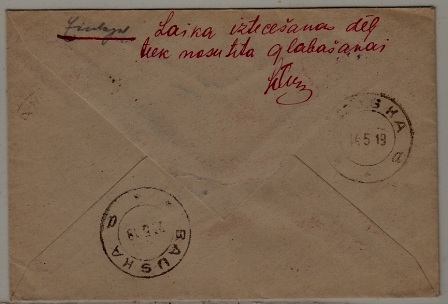 Laika iztecešanas dēļ
tiek nosūtīta glabāšanai
BAUSKA
16 5 19
a
BAUSKA
5 19
a